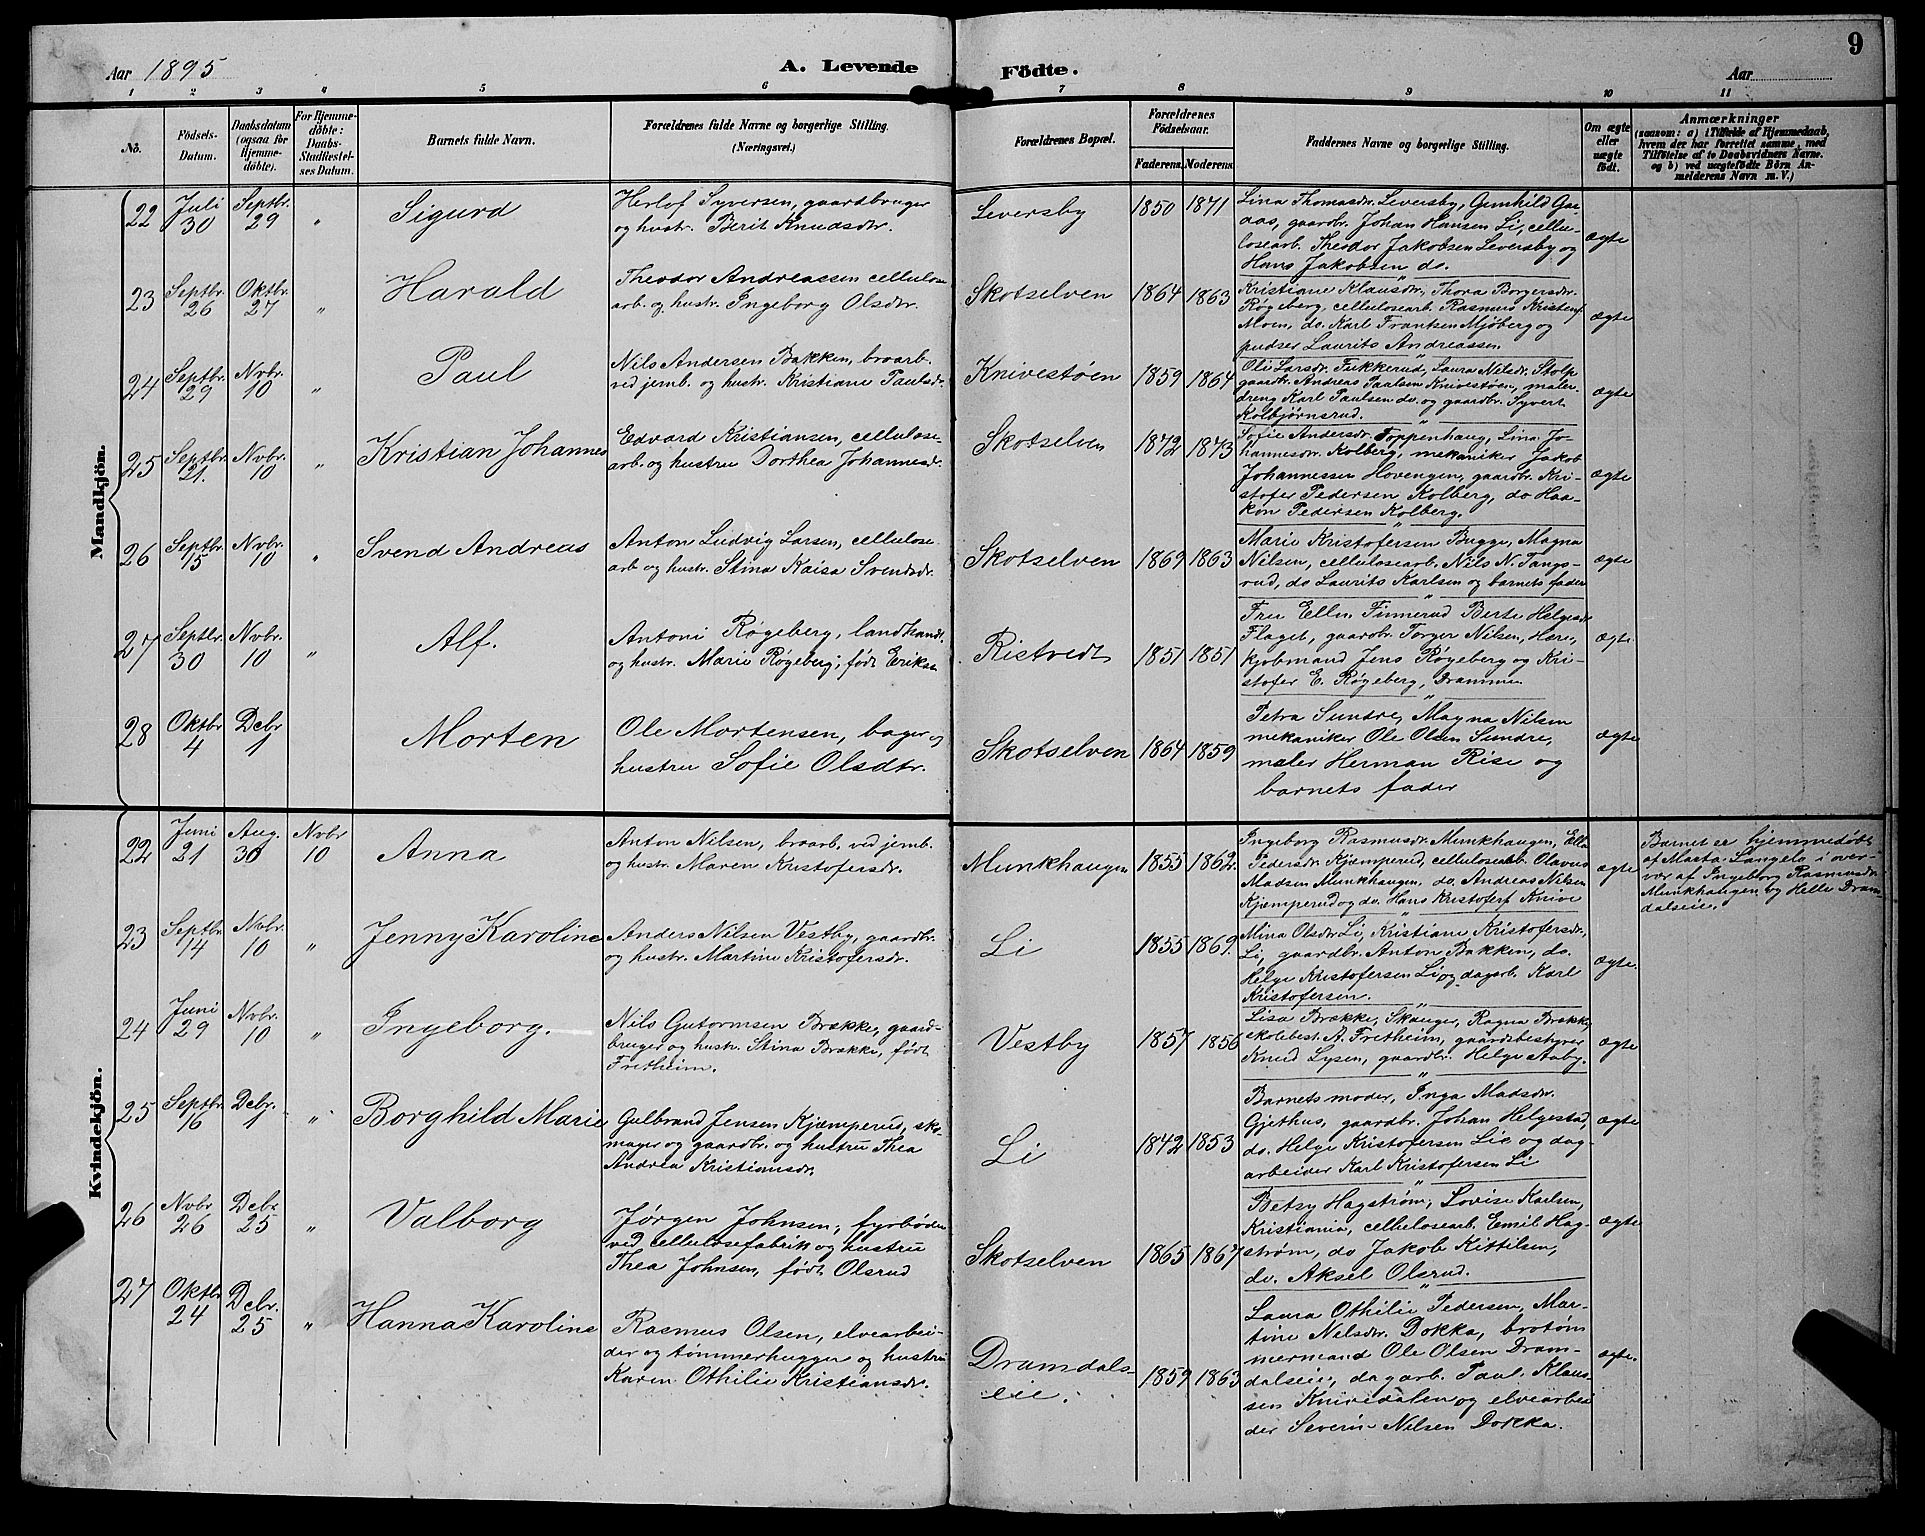 Aar 1895
A. Levende
Födte.
Aar
9
1 2 3 4 5 6 7 8 9 10 11
No.
Födsels-
Datum.
Daabsdatum
(ogsaa for
Hjemme-
döbte).
For Hjemme-
döbte:
Daabs-
Stadfæstel-
ses Datum.
Barnets fulde Navn.
Forældrenes fulde Navne og borgerlige Stilling.
(Næringsvei.)
Forældrenes Bopæl.
Forældrenes
Födselsaar.
Faderens.
Moderens.
Faddernes Navne og borgerlige Stilling.
Om ægte
eller
uægte
födt.
Anmærkninger
(saasom: a) i Tilfælde af Hjemmedaab,
hvem der har forrettet samme, med
Tilföielse af to Daabsvidners Navne.
og b) ved uægtefödte Börn An-
melderens Navn m. V.)
Mandkjön.
22
Juli
30
Septbr.
29
"
Sigurd
Herlof Syversen, gaardbruger
og hustr. Berit Knudsdtr.
Leversby
1850
1871
Lina Thomasdr. Leversby, Gunhild Gaa-
aas, gaardbr. Johan Hansen Li, cellu-
losearb. Theodor Jakobsen Leversby og
Hans Jakobsen do.
ægte
23
Septbr.
26
Oktbr.
27
"
Harald
Theodor Andreassen cellulose
arb. og hustr. Ingeborg Olsdtr.
Skotselven
1864
1863
Kristiane Klausdr., Thora Borgersdr.
Røgeberg, cellulosearb. Rasmus Kristens.
Moen, do. Karl Frantsen Mjøberg og
pudser Laurits Andreassen
ægte
24
Septbr.
29
Nvbr.
10
"
Paul
Nils Andersen Bakken, broarb.
ved jernb. og hustr. Kristiane Paulsdr.
Knivestøen
1859
1864
Oli Larsdr. Fukkerud, Laura Nilsdr. Stolp
gaardbr. Andreas Paulsen Knivestøen, maler-
dreng Karl Paulsen do. og gaardbr. Syvert
Kolbjørnsrud.
ægte
25
Septbr.
21.
Nvbr.
10
"
Kristian Johannes
Edvard Kristiansen, cellulose-
arb. og hustru Dorthea Johannesdr.
Skotselven
1872
1873
Sofie Andersdr. Toppenhaug, Lina Jo-
hannesdr. Kolberg, mekaniker Jakob
Johannessen Hovengen, gaardbr. Kri-
stofer Pedersen Kolberg, do Haa-
kon Pedersen Kolberg.
ægte
26
Septbr.
15
Nvbr.
10
"
Svend Andreas
Anton Ludvig Larsen, cellulose
arb og hustr. Stina Kaisa Svendsdr.
Skotselven
1869
1863
Marie Kristofersen Bugge, Magna
Nilsen, cellulosearb. Nils N. Tangs-
rud, do Laurits Karlsen og barnets fader
ægte
27
Septbr.
30
Nvbr.
10
"
Alf.
Antoni Røgeberg, landhandl.
og hustr. Marie Røgeberg, født Eriksen
Ristvedt
1851
1851
Fru Ellen Finnerud Berte Helgesdr
Flaget, gaardbr. Torger Nilsen, Hore,
kjøbmand Jens Røgeberg og Kri-
stofer E. Røgeberg, Drammen
ægte
28
Oktbr
4
Dcbr
1
Morten
Ole Mortensen, bager og
hustru Sofie Olsdtr.
Skotselven
1864
1859
Petra Sundre, Magna Nilsen
mekaniker Ole Olsen Sundre,
maler Herman Riise og
barnets fader
ægte
Kvindekjön.
22
Juni
21
Aug.
30
Nvbr
10
Anna
Anton Nilsen, broarb. ved jernb.
og hustr. Maren Kristofersdr.
Munkhaugen
1855
1862
Ingeborg Rasmusdr. Munkhaugen, Ella
Pedersdr. Kjemperud, cellulosearb. Olavus
Madsen Munkhaugen, do. Andreas Nilsen
Kjemperud og do. Hans Kristofers. Knive
ægte
Barnet er hjemmedøbt
af Masta Langelo i over-
vær af Ingeborg Rasmusdr
Munkhaugen og Helle Dram-
dalseie.
23
Septbr
14
Nvbr.
10
"
Jenny Karoline
Anders Nilsen Vestby, gaardbr.
og hustr. Martine Kristofersdr.
Li
1855
1869.
Mina Olsdr. Li, Kristiane Kristofersdr.
Li, gaardbr. Anton Bakken, do.
Helge Kristofersen Li og dagarb. Karl
Kristofersen.
ægte.
24
Juni
29
Nvbr.
10
"
Ingeborg.
Nils Gutormsen Brække, gaard-
bruger og hustr. Stina Brække, født
Fretheim.
Vestby
1857
1856
Lisa Brække, Skanger, Ragna Brække
skolebest. A. Fretheim, gaardsbestyrer
Knud Lysen, gaardbr. Helge Aaby.
ægte
25
Septbr
16
Dcbr.
1
"
Borghild Marie
Gulbrand Jensen Kjemperud, sko-
mager og gaardbr. og hustru Thea
Andrea Kristiansdr.
Li
1842
1853
Barnets moder, Inga Madsdr.
Gjethus, gaardbr. Johan Helgestad,
do. Helge Kristofersen Lie og dag-
arbeider Karl Kristofersen Li
ægte
26
Nvbr
26
Dcbr
25
"
Valborg
Jørgen Johnsen, fyrbøder
ved cellulosefabrik og hustru
Thea Johnsen, født Olsrud
Skotselven
1865
1867
Betsy Hagstrøm, Lovise Karlsen,
Kristiania, cellulosearb. Emil Hag-
strøm, do Jakob Kittilsen,
do. Aksel Olsrud.
ægte
27
Oktbr
24
Dcbr.
25
"
Hanna Karoline
Rasmus Olsen, elvearbei-
der og tømmerhugger og hustru
Karen Othilie Kristiansdr.
Dramdals-
eie.
1859
1863
Laura Othilie Pedersen, Mar-
tine Nelsdr. Dokka, brotøm
mermand Ole Olsen Dram-
dalseie, dagarb. Paul Klaus-
sen Knivedalen og elvearbei
der Severin Nilsen Dokka.
ægte.